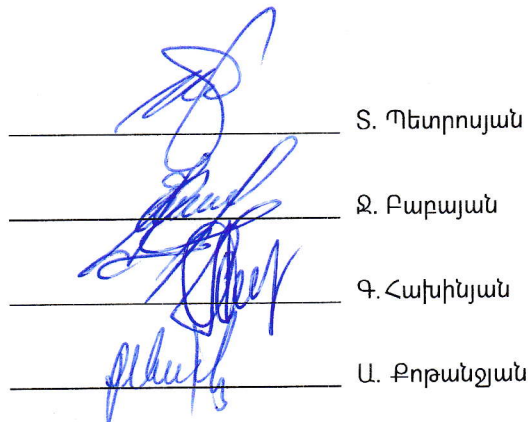 Տ. Պետրոսյան
Ջ. Բաբայան
Գ. Հախինյան
Ա. Քոթանջյան